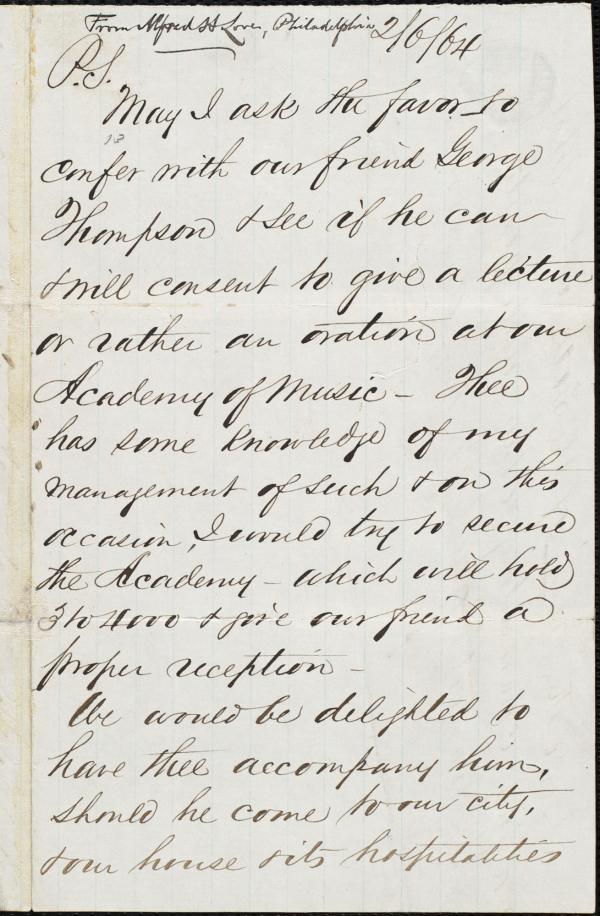 From Alfred H Love, Philadelphia 2/6/64
P.S.
May I ask the favor to
confer with our friend George
Thompson & see if he can
& will consent to give a lecture
or rather an oration at our
Academy of Music - Thee
has some knowledge of my
management of such & on this
occasion, I would try to secure
the Academy - which will hold
3 to 4000 & give our friend a
proper reception -
We would be delighted to
have thee accompany him,
should he come to our city,
& our house & its hospitalities